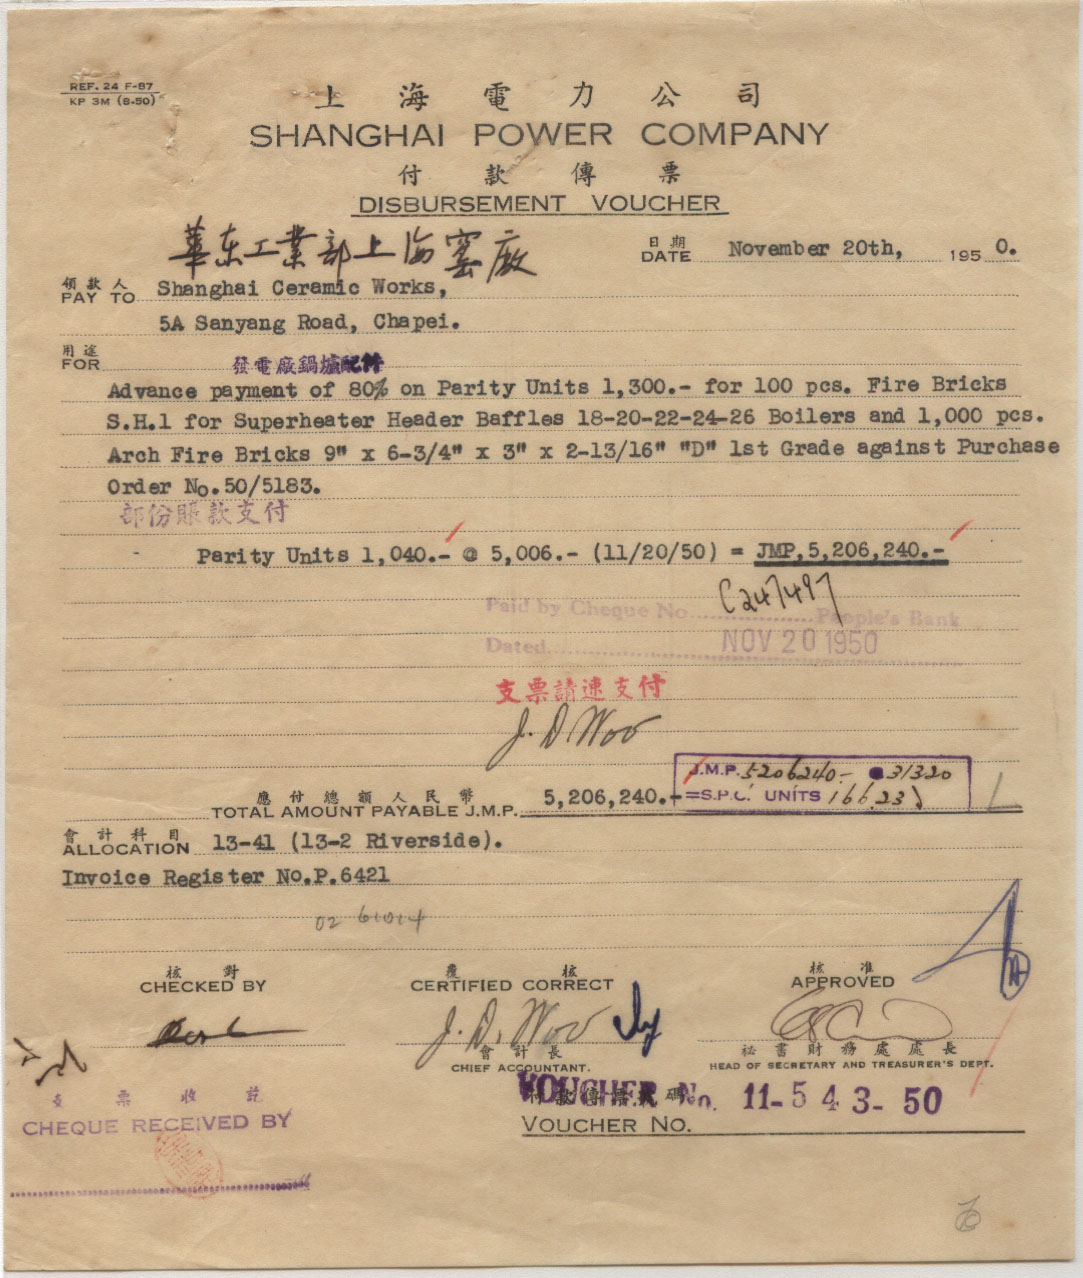 REF. 24 F-87
KP 3M (8-50)
上海電力公司
SHANGHAI POWER COMPANY
付款傳票
DISBURSEMENT VOUCHER
華东工業部上海窰廠
日期
DATE November 20th, 1950.
領款人
PAY TO Shanghai Ceramic Works,
5A Sanyang Road, Chapei.
用途
FOR
發電廠鍋爐配件
Advance payment of 80% on Parity Units 1,300.- for 100 pcs. Fire Bricks
S.H.1 for Superheater Header Baffles 18-20-22-24-26 Boilers and 1,000 pcs.
Arch Fire Bricks 9" x 6-3/4" x 3" x 2-13/16" "D" 1st Grade against Purchase
Order No.50/5183.
部份賬款支付
Parity Units 1,040.- @ 5,006.- (11/20/50) = JMP,5,206,240.-
Paid by Cheque No. C247497 People's Bank
Dated NOV 20 1950
支票請速支付
J. D. Woo
J.M.P. 5206240.- @ 31320
=S.P.C. UNITS 166.23
應付總額人民幣
TOTAL AMOUNT PAYABLE J.M.P. 5,206,240.-
會計科目
ALLOCATION 13-41 (13-2 Riverside).
Invoice Register No.P.6421
02 61014
核對 覆核 核准
CHECKED BY CERTIFIED CORRECT APPROVED
J. D. Woo
會計長 祕書財務處處長
CHIEF ACCOUNTANT. HEAD OF SECRETARY AND TREASURER'S DEPT.
支票收訖
CHEQUE RECEIVED BY
VOUCHER No. 11-543-50
付款傳票號碼
VOUCHER NO.